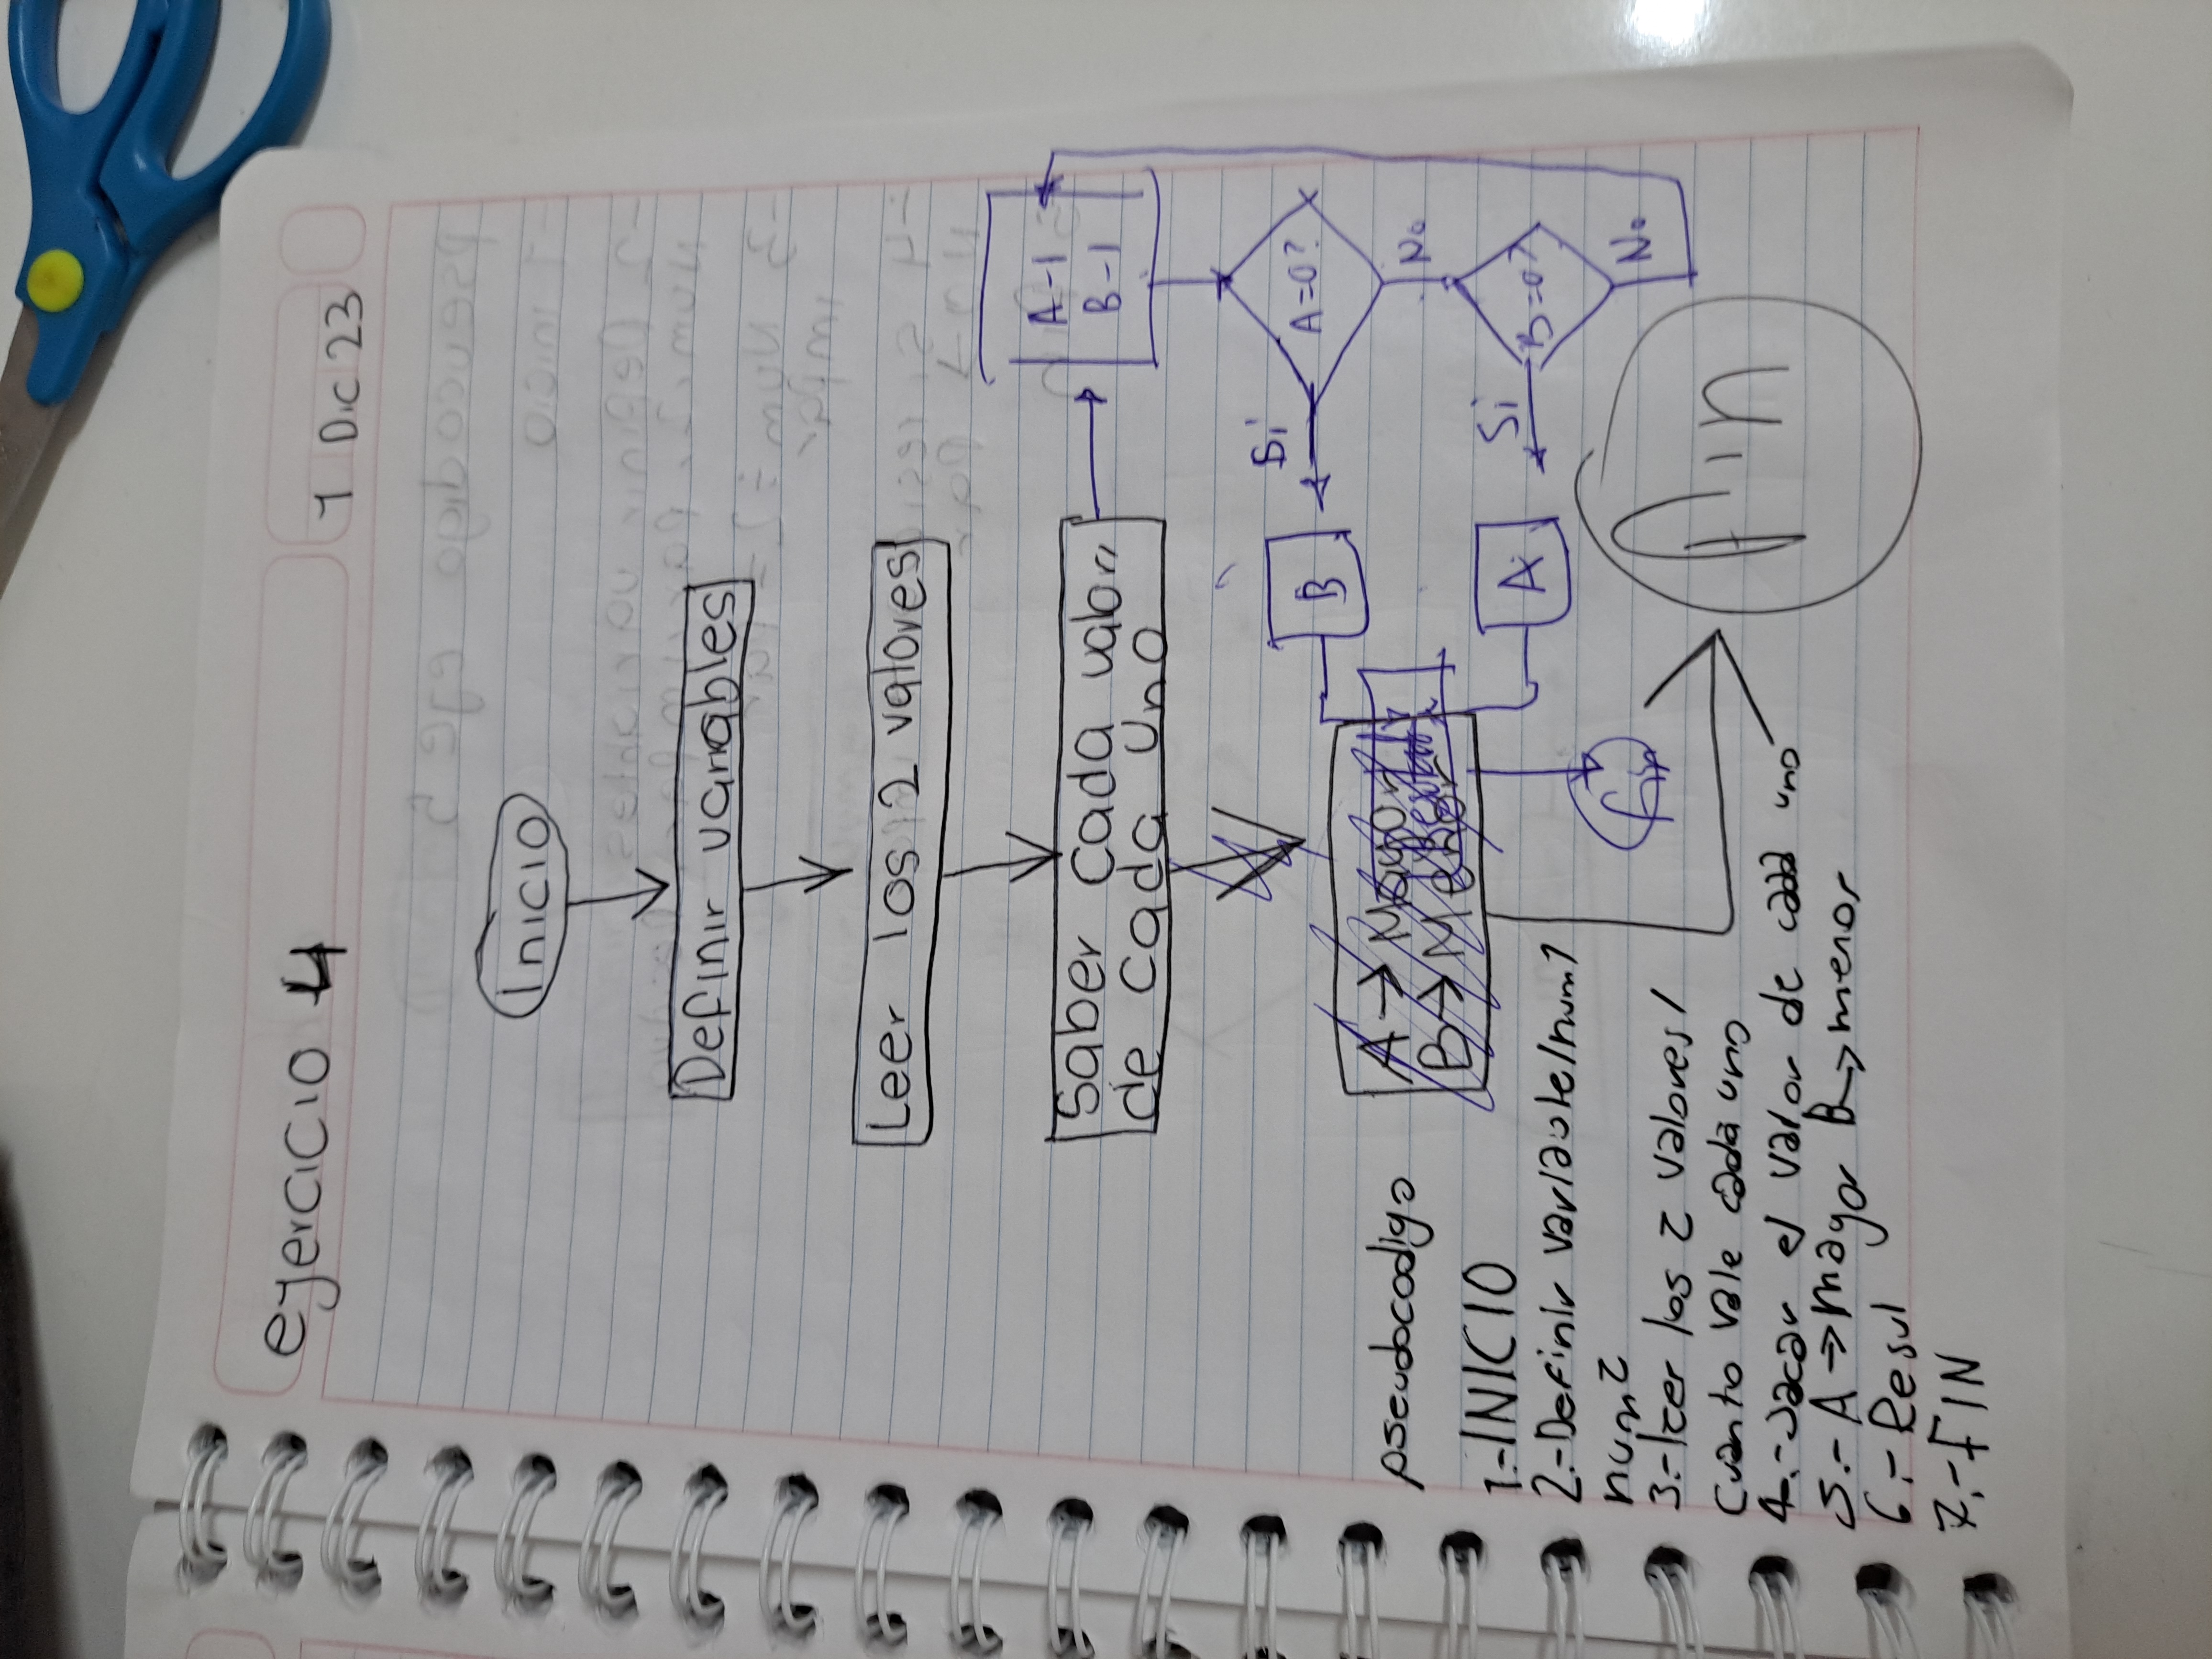 eyercicio 4
1 Dic 23
Inicio
Definir variables
Leer los 2 valores
Saber cada valor
de cada uno
A-1
B-1
A=0?
Si
No
B=0?
Si
No
B
A
A→Mayor
B→Menor
fin
Fin
pseudocodigo
1.-INICIO
2.-Definir variable/num1
num2
3.-leer los 2 valores/
Cuanto vale cada uno
4.-sacar el valor de cada uno
5.-A→mayor B→menor
6.-Resul
7.-FIN